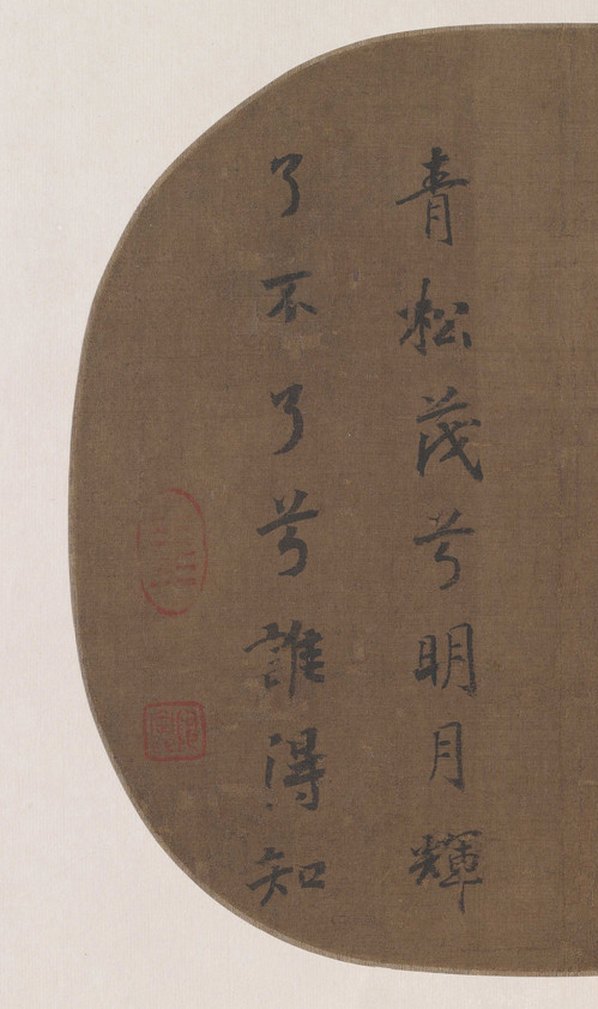 青松茂兮明月輝
了不了兮誰得知